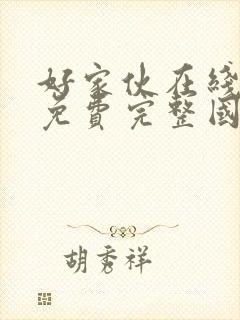 好家伙在线
免費完整國
胡秀祥